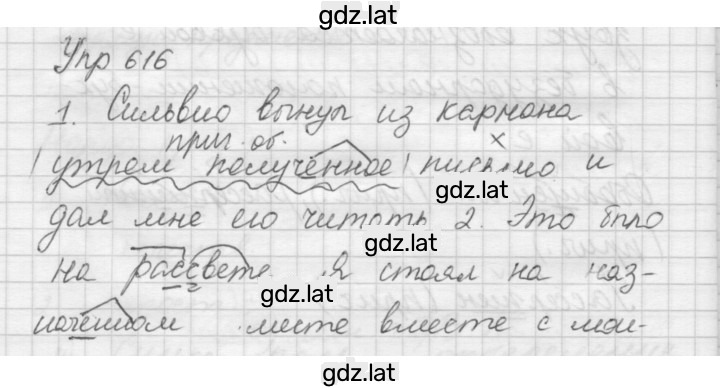 gdz.lat
Упр 616
1. Сильвио вынул из кармана
прич. об. х
утрем полученное письмо и
gdz.lat
дал мне его читать 2. Это было
gdz.lat
на рассвете. Я стоял на наз-
gdz.lat
наченном месте вместе с мои-
gdz.lat